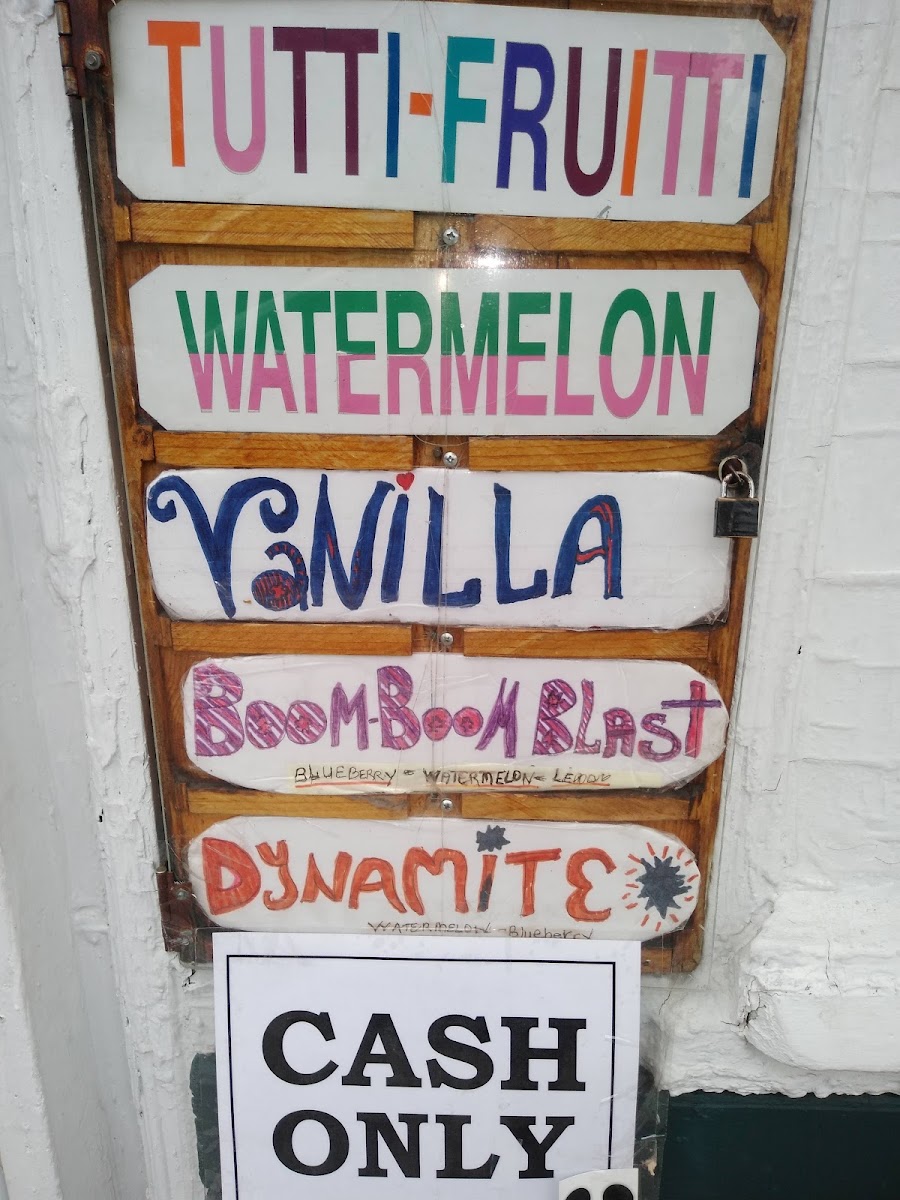 TUTTI-FRUITTI
WATERMELON
VaNiLLA
BOOM-BOOM BLAST
BLUEBERRY - WATERMELON - LEMON
DYNAMiTE
WATERMELON - Blueberry
CASH
ONLY